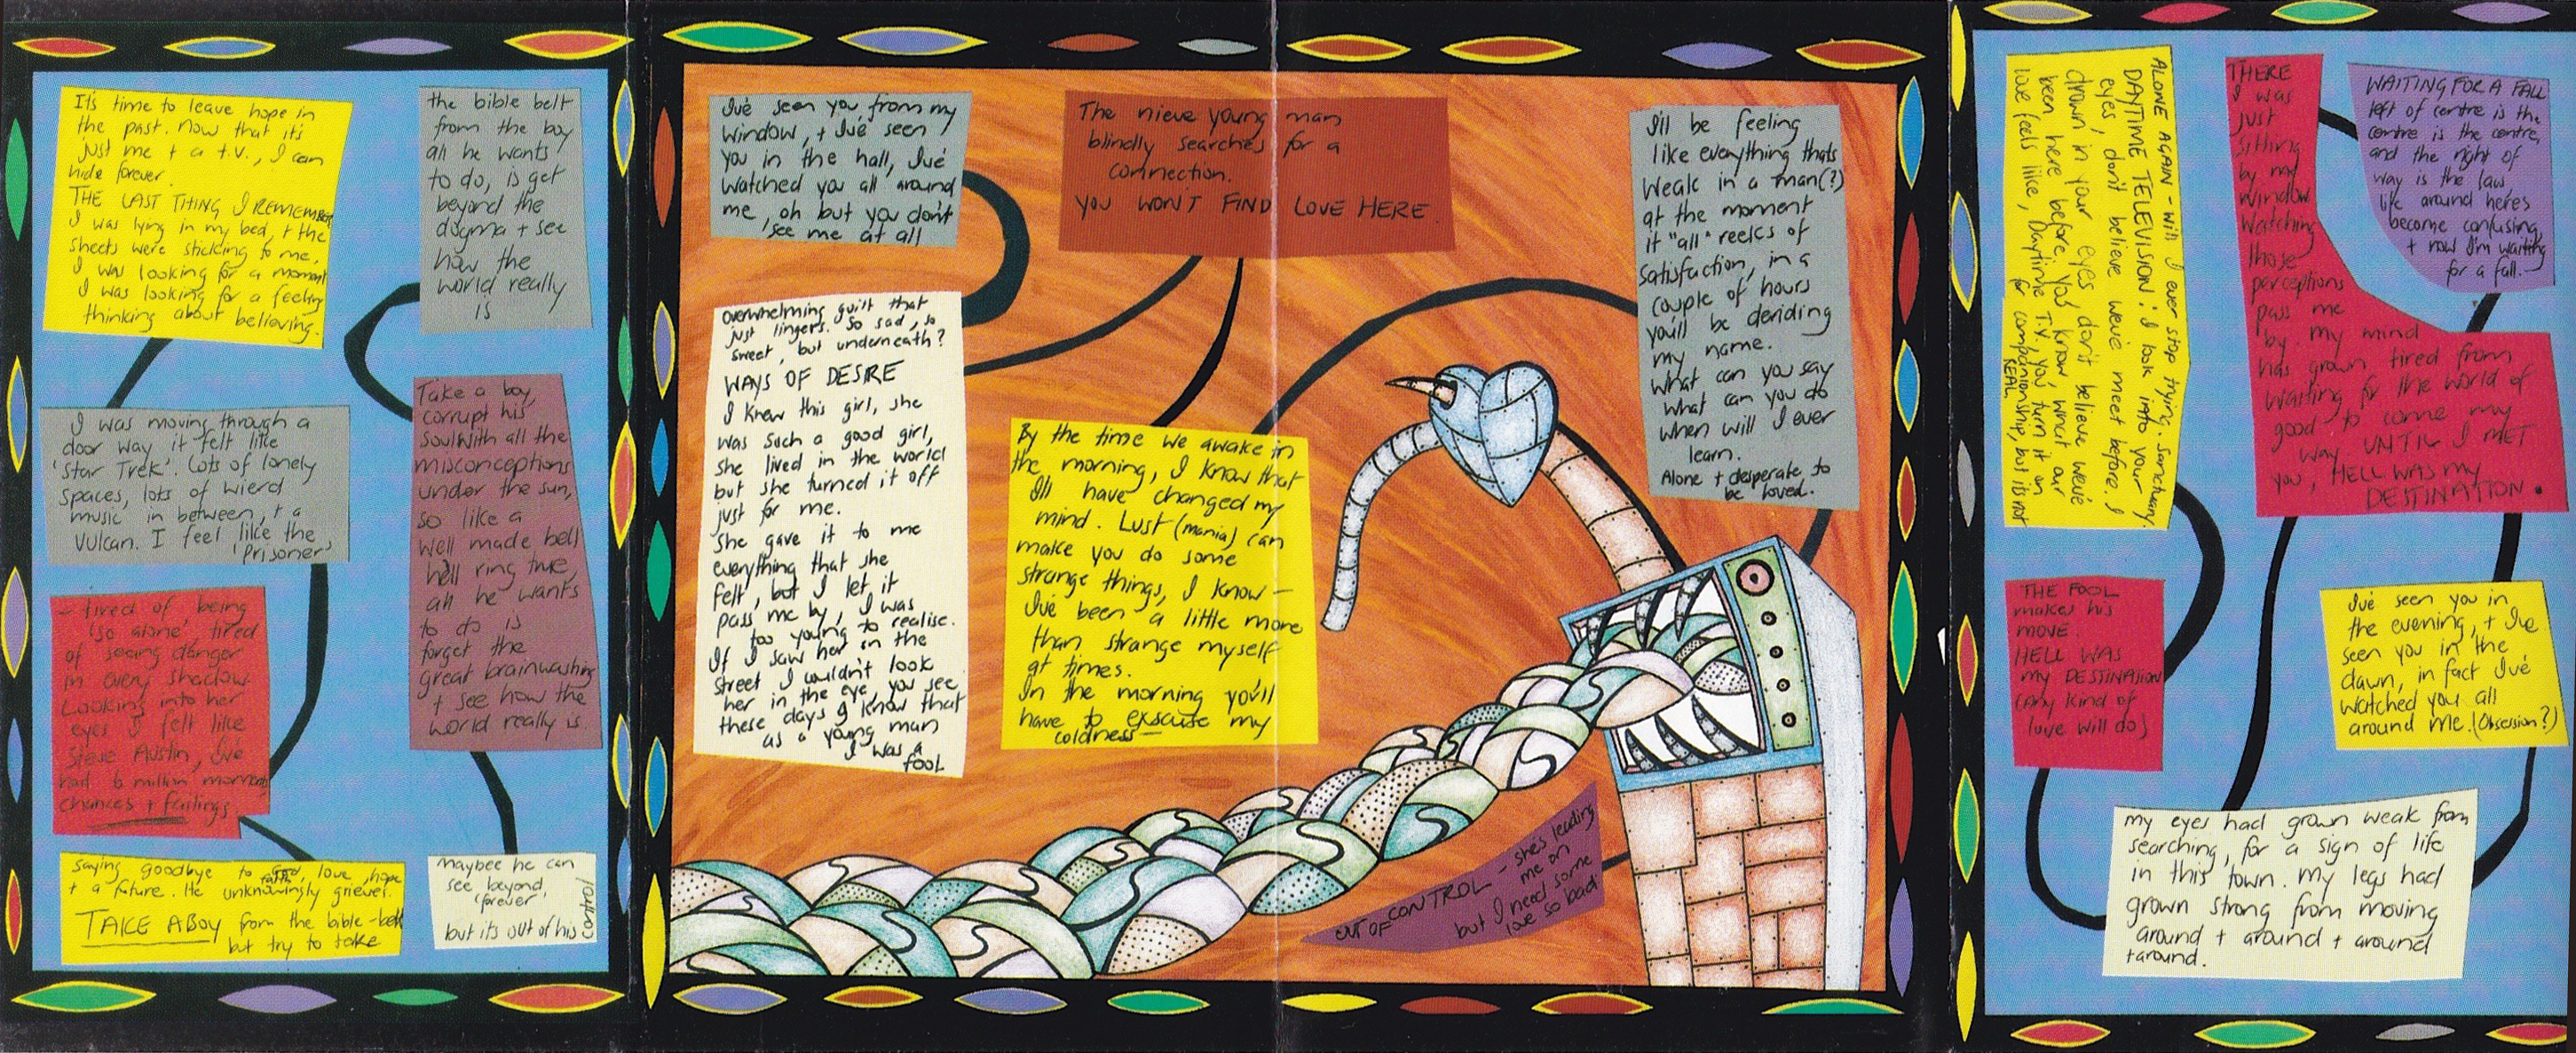 It's time to leave hope in
the past. now that it's
just me + a t.v., I can
hide forever.
THE LAST THING I REMEMBER
I was lying in my bed, + the
sheets were sticking to me.
I was looking for a moment
I was looking for a feeling
thinking about believing.
I was moving through a
door way it felt like
'Star Trek'. Lots of lonely
spaces, lots of wierd
music in between, + a
Vulcan. I feel like the
'Prisoner'
- tired of being
'so alone', tired
of seeing danger
in every shadow.
Looking into her
eyes I felt like
Steve Austin, I've
had 6 million moments
chances + failings
saying goodbye to God, love, hope
faith
+ a future. He unknowingly grieves.
TAKE A BOY from the bible-belt
but try to take
the bible belt
from the boy
all he wants
to do, is get
beyond the
dogma + see
how the
world really
is
Take a boy,
corrupt his
soul with all the
misconceptions
under the sun,
so like a
well made bell
he'll ring true,
all he wants
to do is
forget the
great brainwashing
+ see how the
world really is.
maybee he can
see beyond,
'forever',
but its out of his
control
I've seen you, from my
window, + I've seen
you in the hall, I've
watched you all around
me, oh but you don't
see me at all
overwhelming guilt that
just lingers. So sad, so
sweet, but underneath?
WAYS OF DESIRE
I knew this girl, she
was such a good girl,
she lived in the world
but she turned it off
just for me.
She gave it to me
everything that she
felt, but I let it
pass me by, I was
too young to realise.
If I saw her in the
street I wouldn't look
her in the eye, you see
these days I know that
as a young man
I was a
fool
The nieve young man
blindly searches for a
connection.
YOU WON'T FIND LOVE HERE.
By the time we awake in
the morning, I know that
I'll have changed my
mind. Lust (mania) can
make you do some
strange things, I know -
I've been a little more
than strange myself
at times.
In the morning you'll
have to exscuse my
coldness -
I'll be feeling
like everything thats
weak in a man(?)
at the moment
it "all" reeks of
satisfaction, in a
couple of hours
you'll be deriding
my name.
what can you say
what can you do
when will I ever
learn.
Alone + desperate to
be loved.
OUT OF CONTROL - she's leading
me on
but I need some
love so bad
ALONE AGAIN - will I ever stop trying. sanctuary.
DAYTIME TELEVISION. I look into your
eyes, don't believe we've meet before. I
drown in your eyes don't believe we've
been here before, you know what our
love feels like, Daytime T.V., you turn it on
for companionship, but its not
REAL
THERE
I was
just
sitting
by my
window
watching
those
perceptions
pass me
by. my mind
has grown tired from
waiting for the world of
good to come my
way UNTIL I MET
you, HELL WAS my
DESTINATION.
WAITING FOR A FALL
left of centre is the
centre is the centre,
and the right of
way is the law,
life around heres
become confusing,
+ now I'm waiting
for a fall. -
THE FOOL
makes his
move.
HELL WAS
my DESTINATION
(any kind of
love will do)
I've seen you in
the evening, + I've
seen you in the
dawn, in fact I've
watched you all
around me. (Obsession?)
my eyes had grown weak from
searching, for a sign of life
in this town. my legs had
grown strong from moving
around + around + around
+ around.